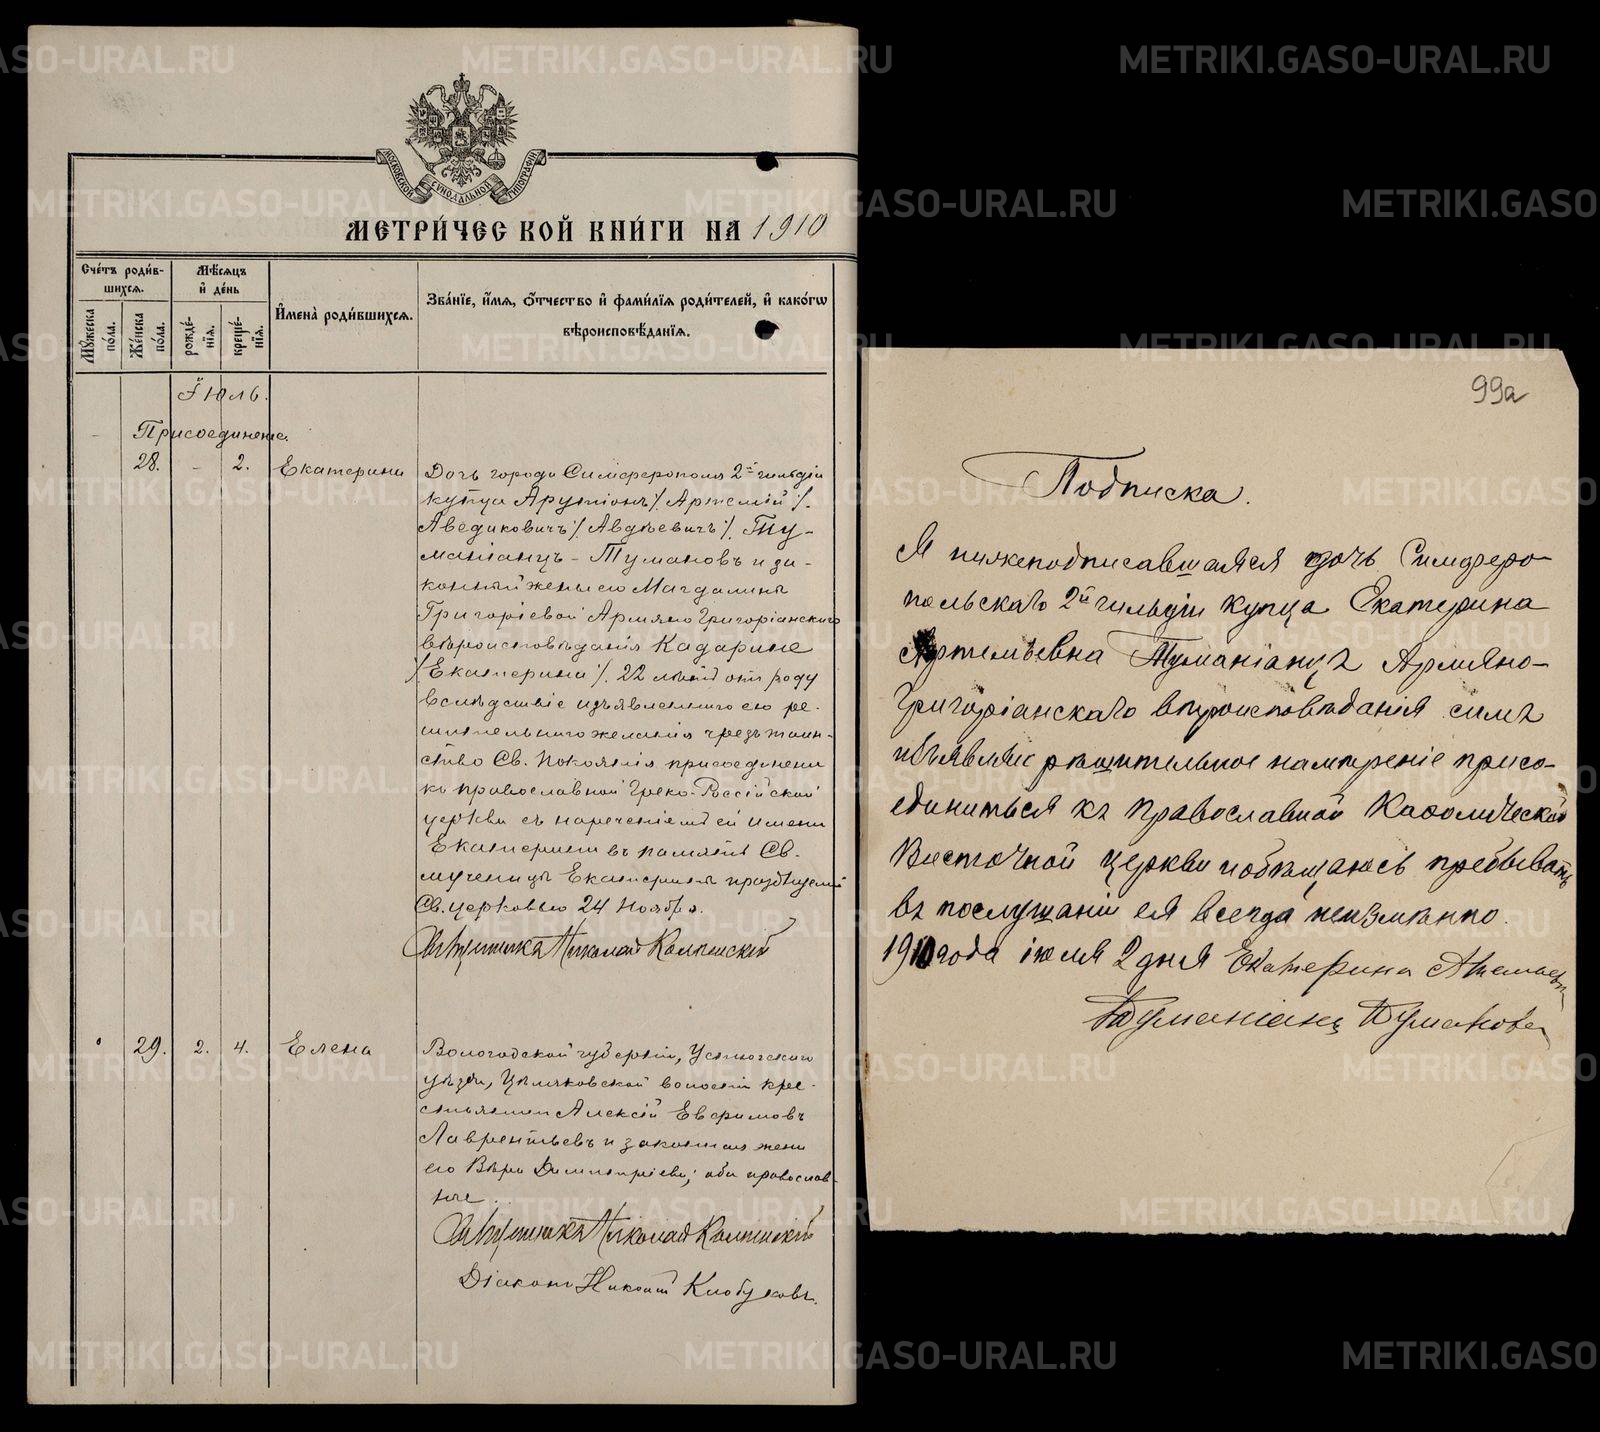 МОСКОВСКОЙ СѴНОДАЛЬНОЙ ТИПОГРАФІИ
МЕТРИ́ЧЕСКОЙ КНИ́ГИ НА 1910
Сче́тъ роди́в-
шихсѧ.
Мѣ́сѧцъ
и҆ де́нь
Мꙋ́жеска по́ла.
Же́нска по́ла.
рожде́-
нїѧ.
креще́-
нїѧ.
И҆мена̀ роди́вшихсѧ.
Зва́нїе, и҆́мѧ, ѻ҆́тчество и҆ фами́лїѧ роди́телей, и҆ како́гѡ
вѣроисповѣ́данїѧ.
Іюль.
Присоединеніе.
28. - 2. Екатерина
Дочь города Симферополя 2й гильдіи
купца Арутюнъ /Артемій/.
Аведиковичъ /Авдѣевичъ/. Ту-
маніанцъ - Тумановъ и за-
конной жены его Магдалины
Григоріевой Армяно Григоріанскаго
вѣроисповѣданія Кадарине
/Екатерина/. 22 лѣтъ отъ роду
вслѣдствіе изъявленнаго ею рѣ-
шительнаго желанія чрезъ таин-
ство Св. Покаянія присоединена
къ православной Греко-Россійской
церкви съ нареченіемъ ей имени
Екатерины въ память Св.
мученицы Екатерины празднуемой
Св. церковью 24 Ноября.
Священникъ Николай
29. 2. 4. Елена
Вологодской губерніи, Устюгскаго
уѣзда, волости кре-
стьянинъ Алексій Евфимовъ
Лаврентьевъ и законная жена
его Вѣра Димитріева; оба православ-
ные.
Священникъ Николай
Діаконъ Николай Клобуковъ.
99а
Подписка.
Я нижеподписавшаяся дочь Симферо-
польскаго 2й гильдіи купца Екатерина
Артемьевна Туманіанцъ Армяно-
Григоріанскаго вѣроисповѣданія симъ
объявляю рѣшительное намѣреніе присо-
единиться къ Православной Каѳолической
Восточной церкви и обѣщаюсь пребывать
въ послушаніи ея всегда неизмѣнно.
1910 года іюля 2 дня Екатерина
Туманіанц Туманова
METRIKI.GASO-URAL.RU